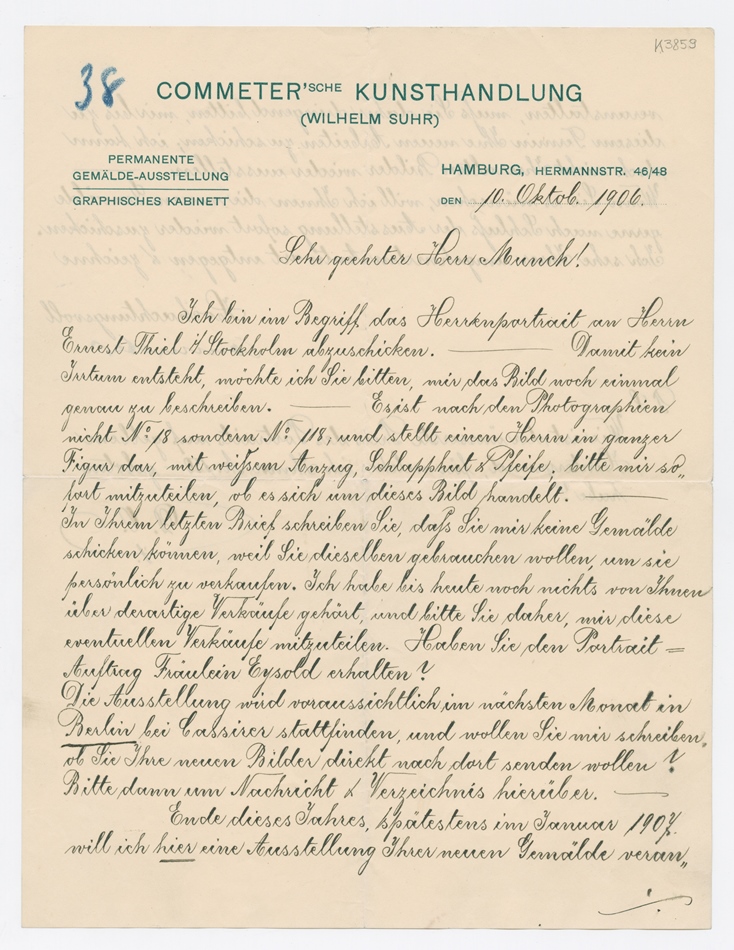 K3859
38
COMMETER'SCHE KUNSTHANDLUNG
(WILHELM SUHR)
PERMANENTE
GEMÄLDE-AUSSTELLUNG
GRAPHISCHES KABINETT
HAMBURG, HERMANNSTR. 46/48
DEN 10. Oktob. 1906.
Sehr geehrter Herr Munch!
Ich bin im Begriff das Herrenportrait an Herrn
Ernest Thiel i/ Stockholm abzuschicken. — Damit kein
Irrtum entsteht, möchte ich Sie bitten, mir das Bild noch einmal
genau zu beschreiben. — Es ist nach den Photographien
nicht No 18 sondern No 118, und stellt einen Herrn in ganzer
Figur dar, mit weißem Anzug, Schlapphut & Pfeife. bitte mir so„
fort mitzuteilen, ob es sich um dieses Bild handelt. —
In Ihrem letzten Brief schreiben Sie, daß Sie mir keine Gemälde
schicken können, weil Sie dieselben gebrauchen wollen, um sie
persönlich zu verkaufen. Ich habe bis heute noch nichts von Ihnen
über derartige Verkäufe gehört, und bitte Sie daher, mir diese
eventuellen Verkäufe mitzuteilen. Haben Sie den Portrait=
Auftrag Fräulein Eysold erhalten?
Die Ausstellung wird voraussichtlich im nächsten Monat in
Berlin bei Cassirer stattfinden, und wollen Sie mir schreiben,
ob Sie Ihre neuen Bilder direkt nach dort senden wollen?
Bitte dann um Nachricht & Verzeichnis hierüber. —
Ende dieses Jahres, spätestens im Januar 1907.
will ich hier eine Ausstellung Ihrer neuen Gemälde veran„